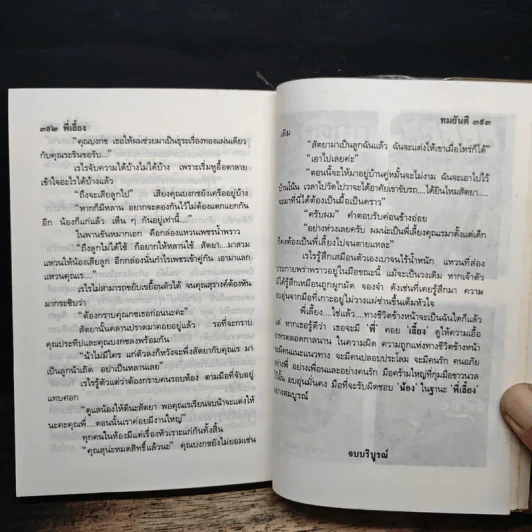 ๓๙๒ พี่เลี้ยง
"คุณบงกช เธอให้ผมช่วยมาเป็นธุระเรื่องทองแผ่นเดียว
กับคุณระรินขอรับ..."
เรไรจับความได้บ้างไม่ได้บ้าง เพราะเริ่มหูอื้อตาลาย
เข้าใจอะไรได้บ้างแล้ว
"ถึงจะเสียลูกไป" เสียงคุณบงกชยังเครืออยู่บ้าง
"หากก็มีหลาน อยากจะดองกันไว้ไม่ต้องแตกแยกกัน
อีก น้องก็แก่แล้ว เห็น ๆ กันอยู่เท่านี้...."
ในพานขันหมากเอก คือกล่องแหวนเพชรน้ำพราว
"ถึงลูกไม่ได้ใช้ ก็อยากให้หลานใช้ สัตยา....มาสวม
แหวนให้น้องเสียลูก อีกกล่องนั่นกำไรเพชรเข้าคู่กัน เอามาแลก
แหวนคุณเร...."
เรไรไม่สามารถขยับเขยื้อนตัวได้ จนคุณสุรางค์ต้องหัน
มากระซิบว่า
"ต้องกราบคุณกชเธอก่อนนะคะ"
สัตยานั้นคลานปราดมาคอยอยู่แล้ว รอที่จะกราบ
คุณประทีปและคุณบงกชลงพร้อมกัน
"น้าไม่มีใคร แก่ตัวลงก็หวังจะพึ่งสัตยากับคุณเร มา
เป็นลูกน้าเถิด อย่าเป็นหลานเลย"
เรไรรู้ตัวแต่ว่าต้องกราบคนรอบห้อง ตามมือที่จับอยู่
แทบศอก
"ดูแลน้องให้ดีนะสัตยา พอคุณเรเรียนจบน้าจะแต่งให้
นะคะคุณพี่....ตอนนั้นเราค่อยมีงานใหญ่"
ทุกคนในห้องมีแต่เรื่องหัวเราะแก่กันทั้งสิ้น
"คุณสุน่ะหมดสิทธิ์แล้วนะ" คุณบงกชยังไม่ยอมเช่น
ทมยันตี ๓๙๓
เดิม
"สัตยามาเป็นลูกฉันแล้ว ฉันจะแต่งให้เขาเมื่อไหร่ก็ได้"
"เอาไปเลยค่ะ"
"ตอนนี้จะให้มาอยู่บ้านคู่หมั้นจะไม่งาม ฉันจะเอาไปไว้
บ้านโน้น เวลาไปวัดไปวาจะได้อาศัยเขาขับรถ....ได้ยินไหมสัตยา...
จะมาที่นี่มาได้ต้องเป็นเมื่อเป็นคราว"
"ครับผม" คำตอบรับค่อนข้างอ่อย
"อย่างห่วงเลยครับ ผมน่ะเป็นพี่เลี้ยงคุณเรมาตั้งแต่เด็ก
ก็คงต้องเป็นพี่เลี้ยงไปจนตายแหละ"
เรไรรู้สึกเสมือนตัวเองเบาจนไร้น้ำหนัก แหวนที่ส่อง
ประกายพร่าพราวอยู่ในมือขณะนี้ แม้จะเป็นวงเดิม หากเจ้าตัว
ได้รู้สึกเหมือนถูกผูกมัด จองจำ ดังเช่นที่เคยรู้สึกมา ความ
อบอุ่นจากมือที่เกาะอยู่ไม่วางแผ่ซ่านขึ้นเต็มหัวใจ
พี่เลี้ยง....ใช่แล้ว....ทางชีวิตข้างหน้าจะเป็นฉันใดก็แล้ว
แต่ หากเธอรู้ดีว่า เธอจะมี 'พี่' คอย 'เลี้ยง' ดูให้ความเอื้อ
อาทรตลอดกาลนาน ในความมืด ความถูกแห่งทางชีวิตข้างหน้า
จะมีคนแนะแนวทาง จะมีคนปลอบประโลม จะมีคนรัก คนอภัย
อย่างพี่ อย่างเพื่อนและอย่างคนรัก มือคร้ามใหญ่ที่กุมมือชาวนวล
นั้น อบอุ่นมั่นคง มือที่จะรับผิดชอบ 'น้อง' ในฐานะ 'พี่เลี้ยง'
อย่างสมบูรณ์
จบบริบูรณ์